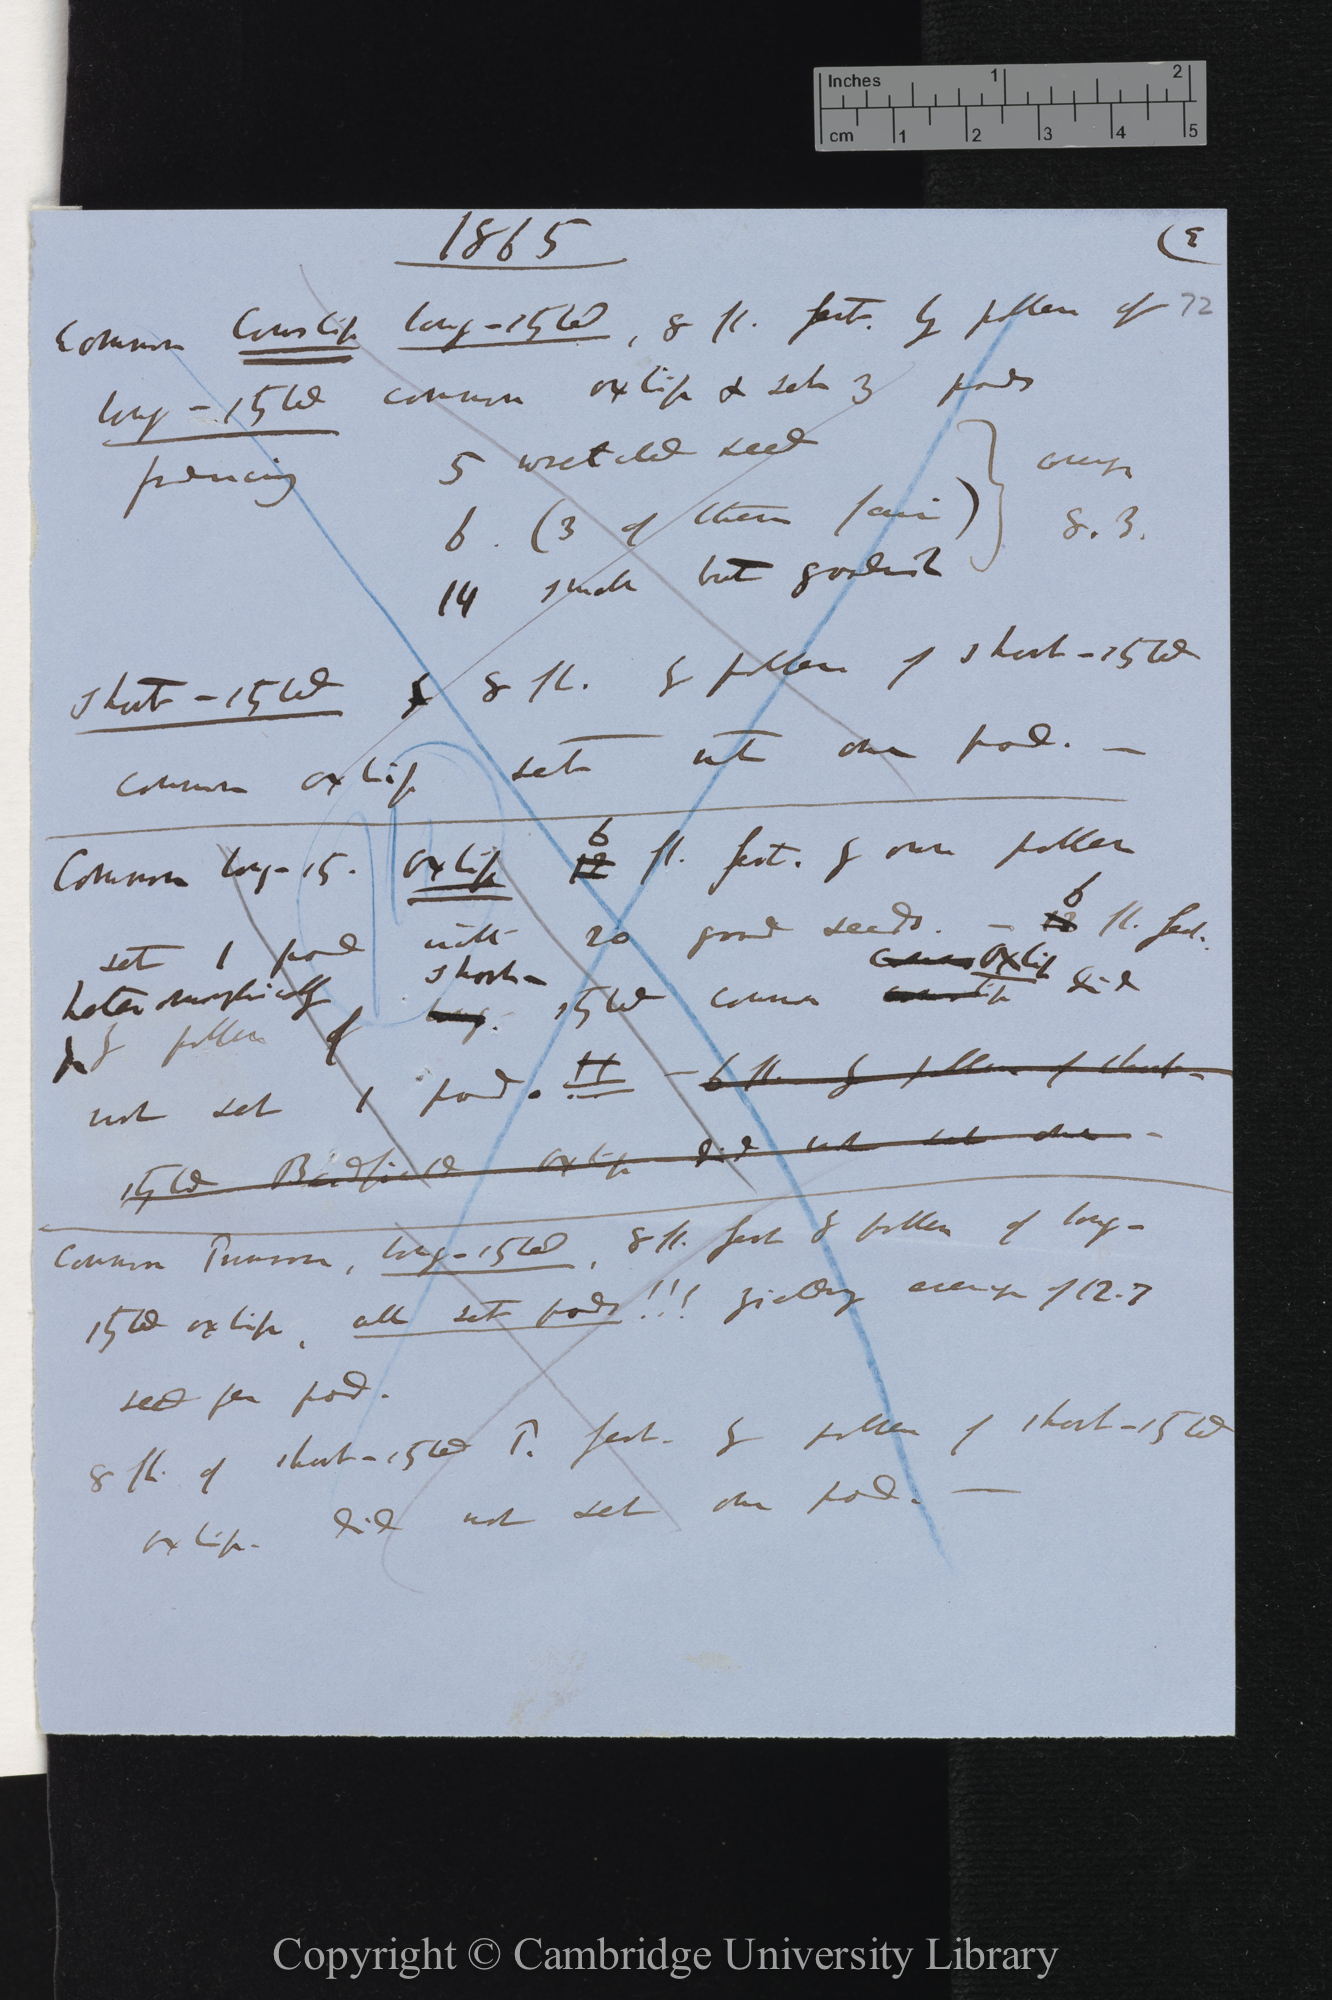 Inches 1 2
cm 1 2 3 4 5
1865
(3
72
Common Cowslip long-styled, 8 fl. fert. by pollen of
long-styled common oxlip & set 3 pods
producing 5 wretched seed
6. (3 of them fair)
14 small but goodish
average
8.3.
Short-styled 8 fl. by pollen of short-styled
common oxlip set not one pod. —
Common long-st. Oxlip 12 6 fl. fert. by own pollen
set 1 pod with 20 good seeds. — 12 6 fl. fert.
heteromorphically by pollen of long. short-styled common cowslip Oxlip did
not set 1 pod. !! — 6 fl. by pollen of short-
styled Bardfield oxlip did not set one —
Common Primrose, long-styled, 8 fl. fert by pollen of long-
styled oxlip, all set pods!!! yielding average of 12.7
seed per pod.
8 fl. of short-styled P. fert. by pollen of short-styled
oxlip. did not set one pod. —
Copyright © Cambridge University Library